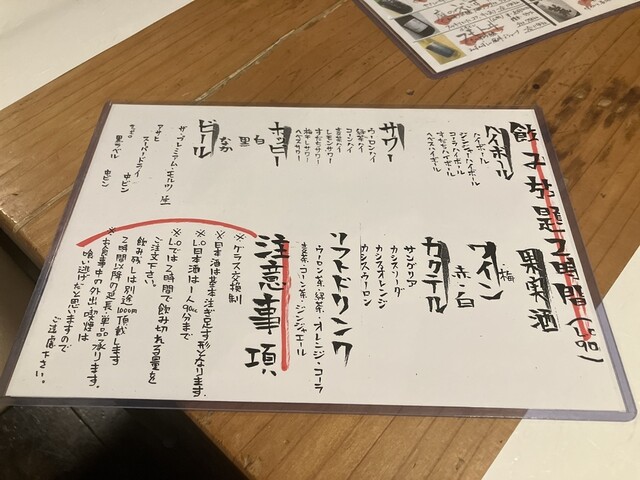 飲み放題2時間(L.O90)
ハイボール
ハイボール
ジンジャーハイボール
コーラハイボール
すだちハイボール
ヘベスハイボール
サワー
ウーロンハイ
緑茶ハイ
コーンハイ
レモンサワー
すだちサワー
梅干しサワー
ヘベスサワー
ホッピー
白
黒
なか
ビール
ザ・プレミアム・モルツ 生
アサヒ
スーパードライ 中ビン
黒ラベル 中ビン
果実酒
梅
ワイン
赤・白
カクテル
サングリア
カシスソーダ
カシスオレンジ
カシスウーロン
ソフトドリンク
ウーロン茶・緑茶・オレンジ・コーラ
コーン茶・ジンジャエール
注意事項
※グラス交換制
※日本酒は基本注ぎ足す形となります。
※L.O日本酒は一人90ccまで
※L.Oでは2時間で飲み切れる量を
ご注文下さい。
飲み残しは別途1000円頂戴します
2時間以降の延長・単品承ります。
※お食事中の外出・喫煙は
喰い逃げだと思いますので
ご注意下さい。